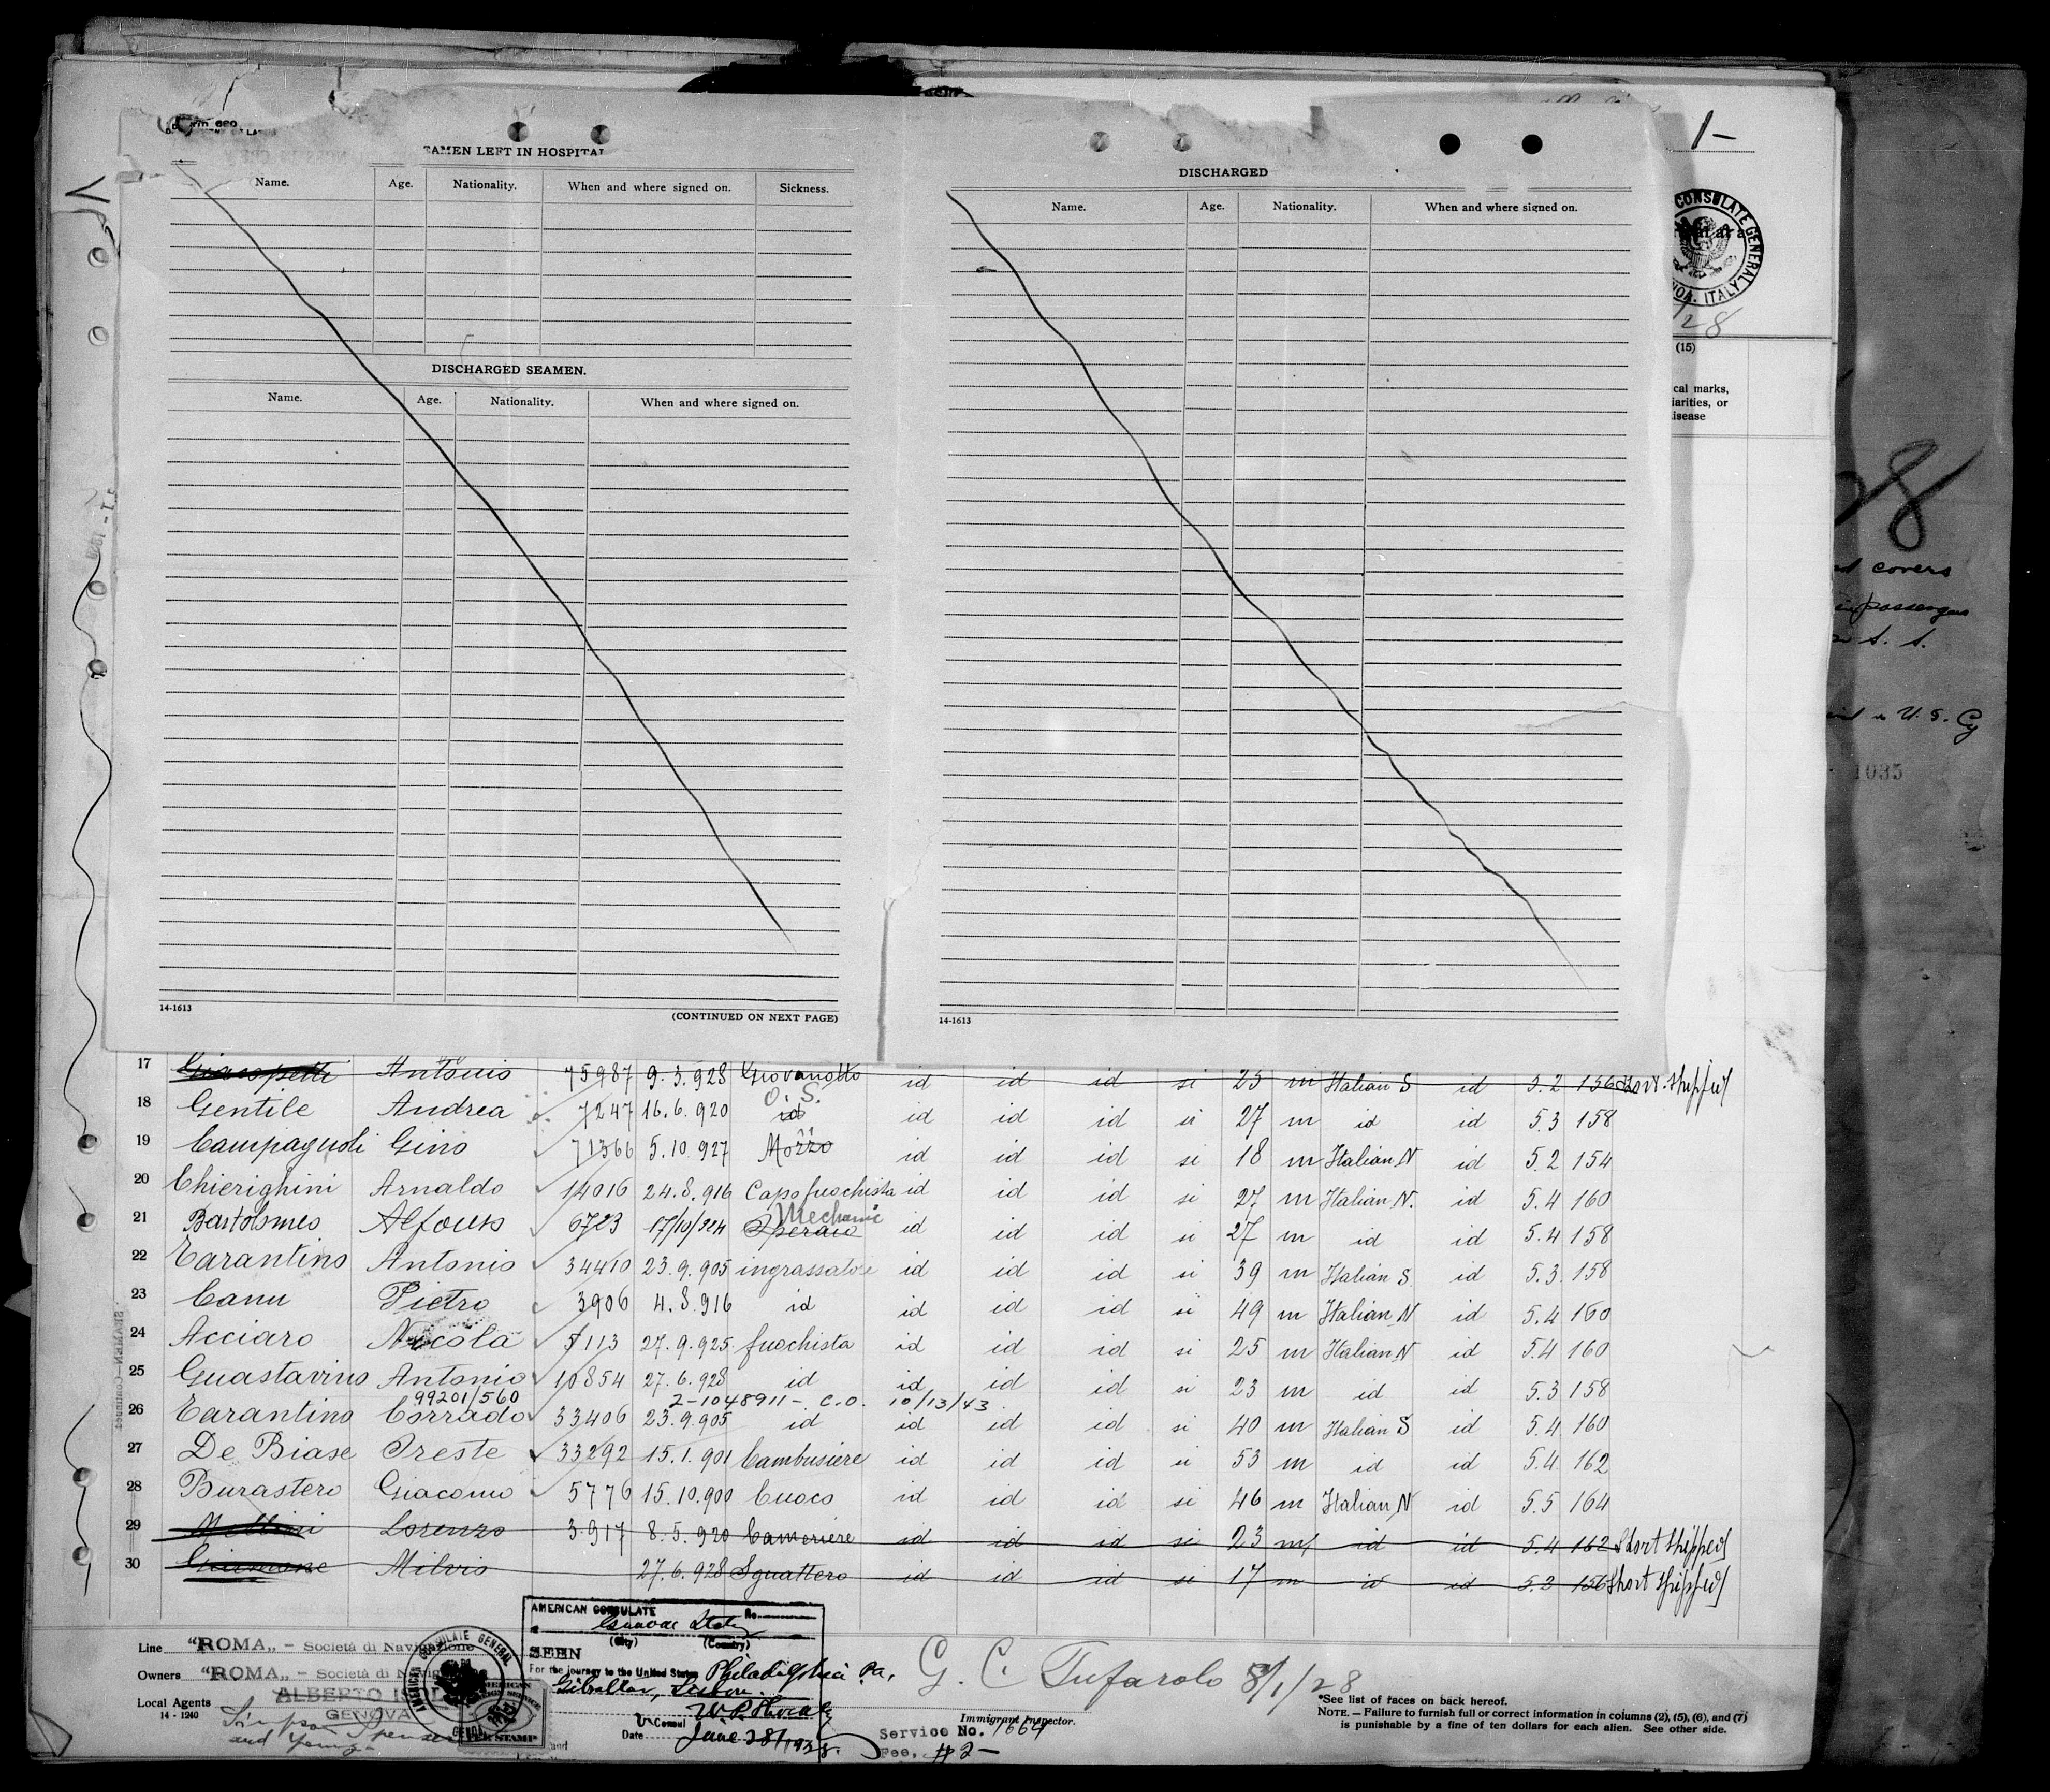 SEAMEN LEFT IN HOSPITAL
Name. Age. Nationality. When and where signed on. Sickness.
DISCHARGED SEAMEN.
Name. Age. Nationality. When and where signed on.
14-1613 (CONTINUED ON NEXT PAGE)
DISCHARGED
Name. Age. Nationality. When and where signed on.
14-1613
1-
CONSULATE GENERAL
ITALY
/28
(15)
cal marks,
iarities, or
isease
28
covers
in passenger
S. S.
U. S. Cy
1035
17 Giacopetti Antonio 75987 9.3.928 Giovanotto id id id si 23 m Italian S id 5.2 156 Short shipped
18 Gentile Andrea 7247 16.6.920 id O.S. id id id si 27 m id id 5.3 158
19 Campagnoli Gino 71366 5.10.927 Mozzo id id id si 18 m Italian N id 5.2 154
20 Chierighini Arnaldo 14016 24.8.916 Capo fuochista id id id si 27 m Italian N. id 5.4 160
21 Bartolomeo Alfonso 6723 17/10/924 Operaio Mechanic id id id si 27 m id id 5.4 158
22 Tarantino Antonio 34410 23.9.905 ingrassatore id id id si 39 m Italian S id 5.3 158
23 Canu Pietro 3906 4.8.916 id id id id si 49 m Italian N id 5.4 160
24 Acciaro Nicola 5113 27.9.925 fuochista id id id si 25 m Italian N id 5.4 160
25 Guastavino Antonio 10854 27.6.928 id id id id si 23 m id id 5.3 158
99201/560 2-1048911- C.O. 10/13/43
26 Tarantino Corrado 33406 23.9.905 id id id id si 40 m Italian S id 5.4 160
27 De Biase Oreste 33292 15.1.901 Cambusiere id id id si 53 m id id 5.4 162
28 Burastero Giacomo 5776 15.10.900 Cuoco id id id si 46 m Italian N id 5.5 164
29 Lorenzo 3917 8.5.920 Cameriere id id id si 23 m id id 5.4 162 Short shipped
30 Milvio 27.6.928 Sguattero id id id si 17 m id id 5.3 156 Short shipped
Line "ROMA„ - Società di Navigazione
Owners "ROMA„ - Società di Navig
Local Agents ALBERTO
14 - 1240 GENOVA
Simpson Spence
and Young-
AMERICAN CONSULATE GENERAL
GENOA
AMERICAN CONSULATE No.
Genoa Italy
(City) (Country)
SEEN
For the journey to the United States Philadelphia Pa.
Gibraltar, Lisbon.
V Consul
Date June 28/1928.
Service No. 1664
Fee, #2-
G. C. Tufarolo 8/1/28
Immigrant Inspector.
*See list of races on back hereof.
NOTE. — Failure to furnish full or correct information in columns (2), (5), (6), and (7)
is punishable by a fine of ten dollars for each alien. See other side.